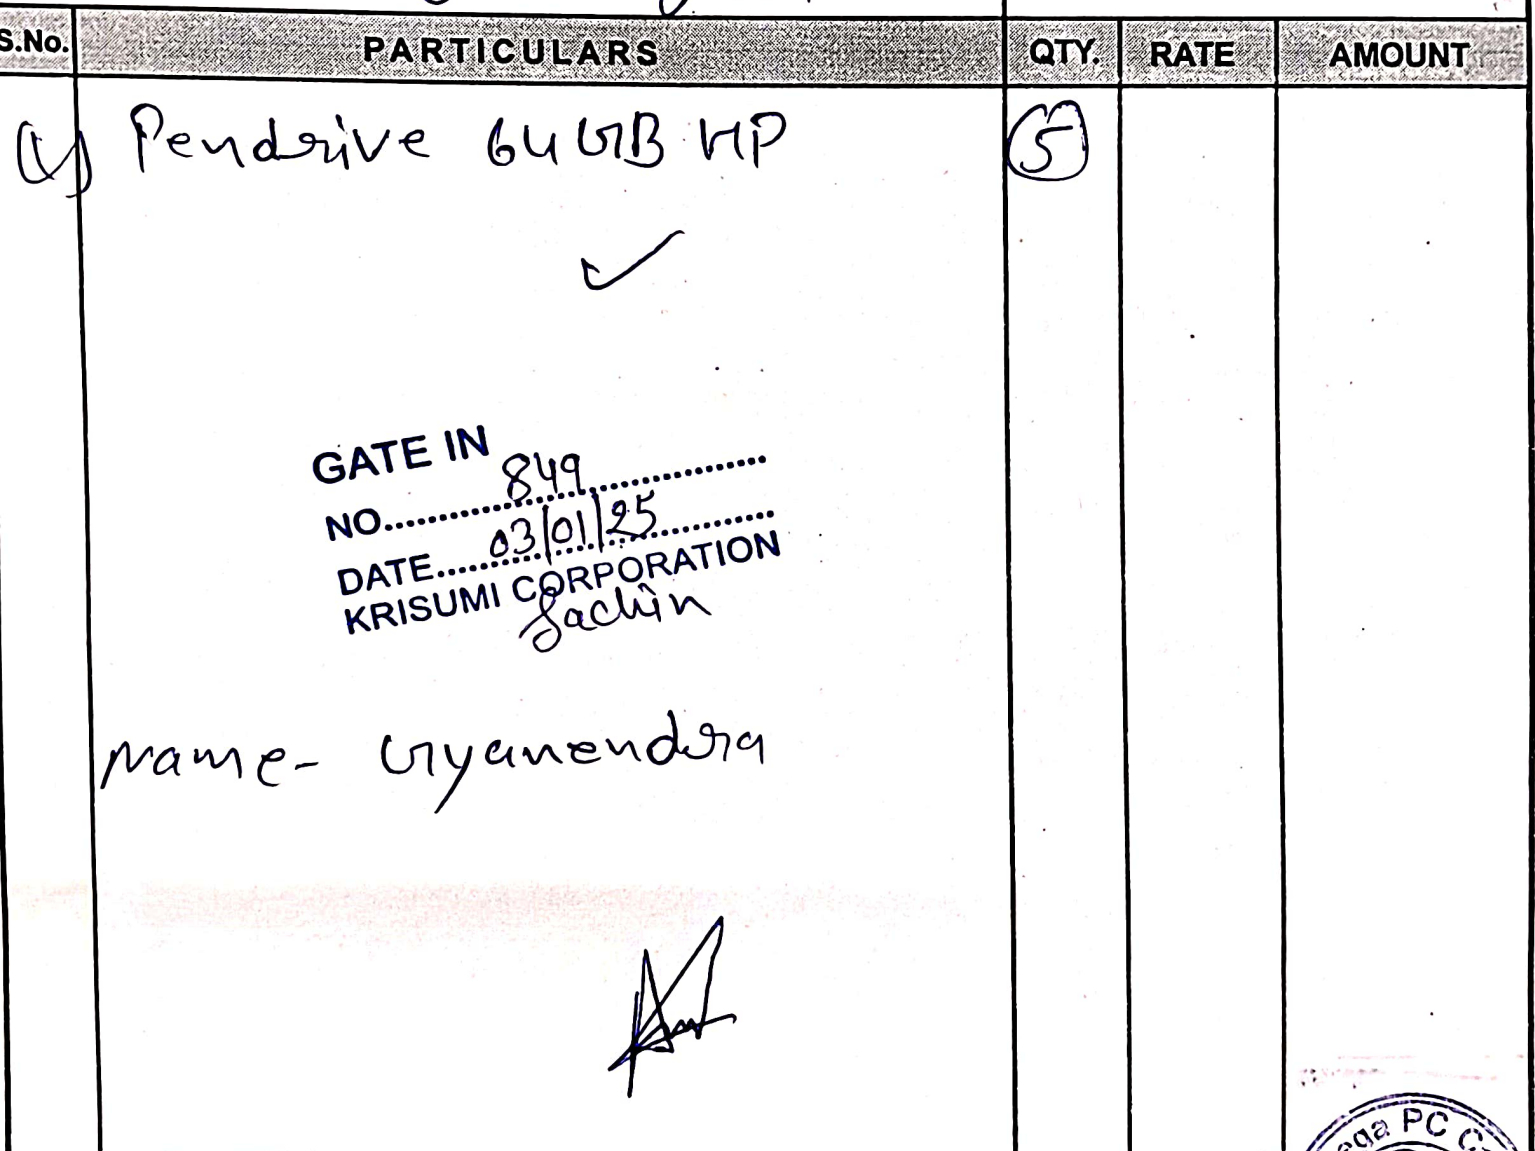 S.No. PARTICULARS QTY. RATE AMOUNT
(1) Pendrive 64GB HP 5
GATE IN
NO. 849
DATE 03/01/25
KRISUMI CORPORATION
Sachin
Name- Gyanendra
ega PC C